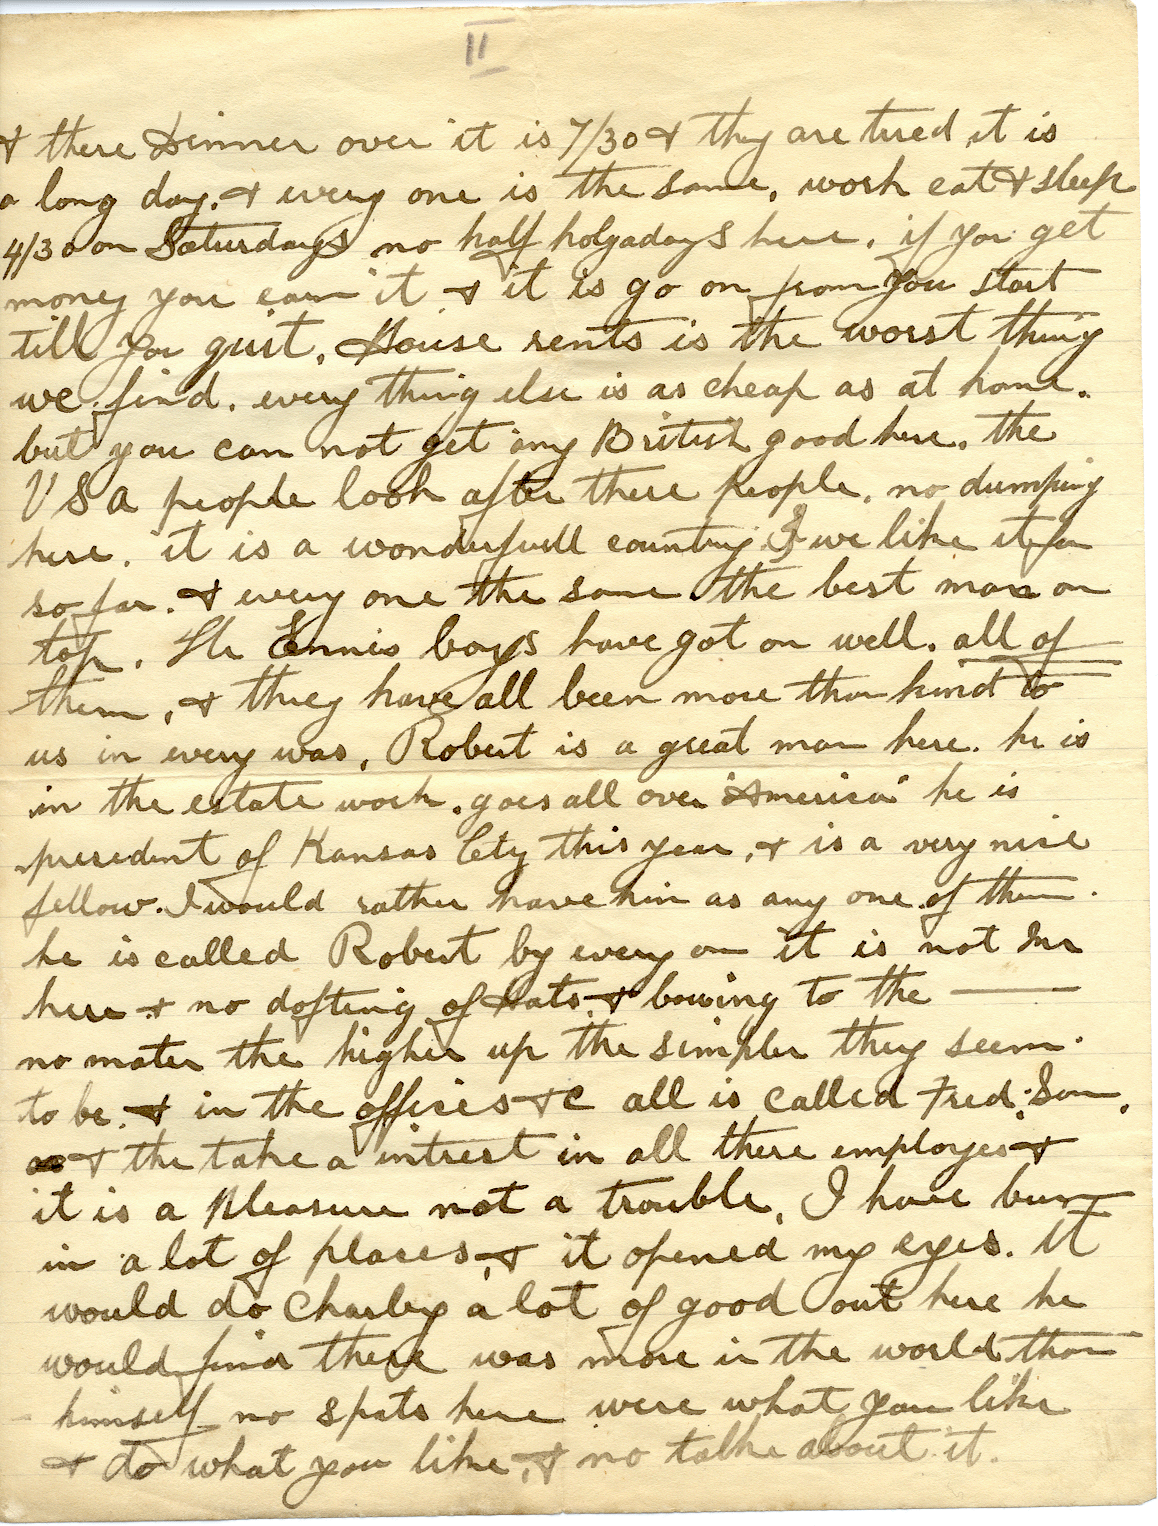 II
& there Dinner over it is 7/30 & they are tired it is
a long day. & every one is the same, work eat & sleep
4/30 on Saturdays no half holyadays here. if you get
money you earn it & it is go on from you start
till you quit. House rents is the worst thing
we find. every thing else is as cheap as at home.
but you can not get any British good here. the
U S A people look after there people. no dumping
here. it is a wonderfull country & we like it
so far. & every one the same the best man on
top. The Ennis boys have got on well. all of
them, & they have all been more than kind to
us in every was, Robert is a great man here. he is
in the estate work. goes all over "America" he is
president of Kansas City this year, & is a very nice
fellow. I would rather have him as any one of them.
he is called Robert by every on it is not Mr
here & no dofting of Hats & bowing to the ———
no mater the higher up the simpler they seem
to be. & in the offices & C all is called Fred, Sam,
& the take a intrest in all there employes &
it is a pleasure not a trouble, I have been
in a lot of places, & it opened my eyes. It
would do Charley a lot of good out here he
would find there was more in the world than
himself no spats here were what you like
& do what you like, & no talke about it.